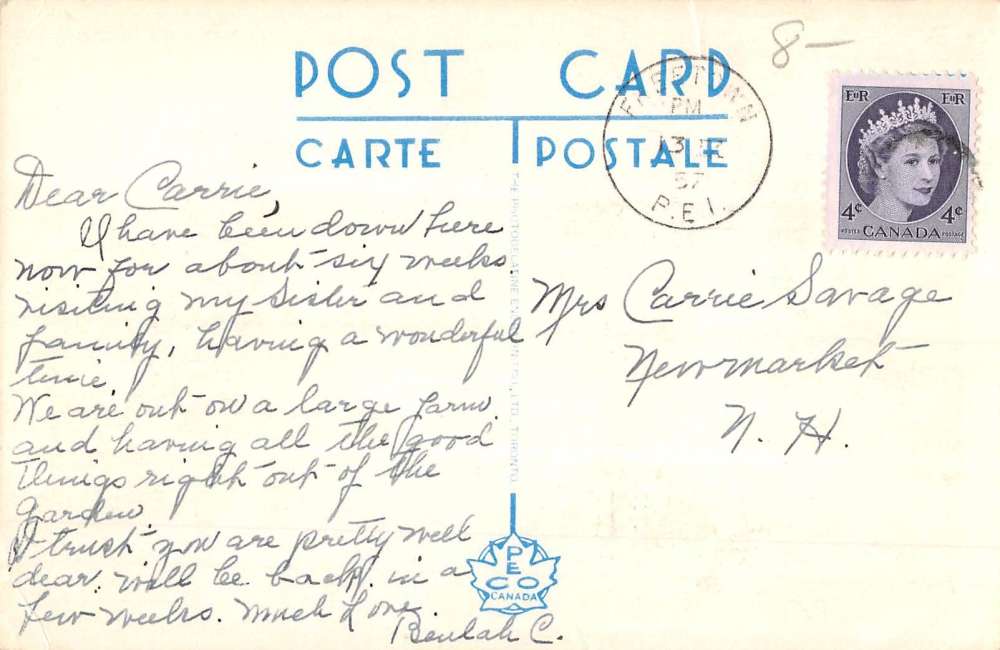 8-
POST CARD
CARTE POSTALE
FREETOWN
PM
13
57
P.E.I.
EIIR EIIR
4¢ 4¢
POSTES CANADA POSTAGE
Dear Carrie,
I have been down here
now for about six weeks
visiting my sister and
family, having a wonderful
time.
We are out on a large farm
and having all the good
things right out of the
garden.
I trust you are pretty well
dear. will be back in a
few weeks. Much Love.
Beulah C.
Mrs Carrie Savage
Newmarket
N. H.
THE PHOTOGELATINE ENGRAVING CO. LTD., TORONTO
PECO
CANADA